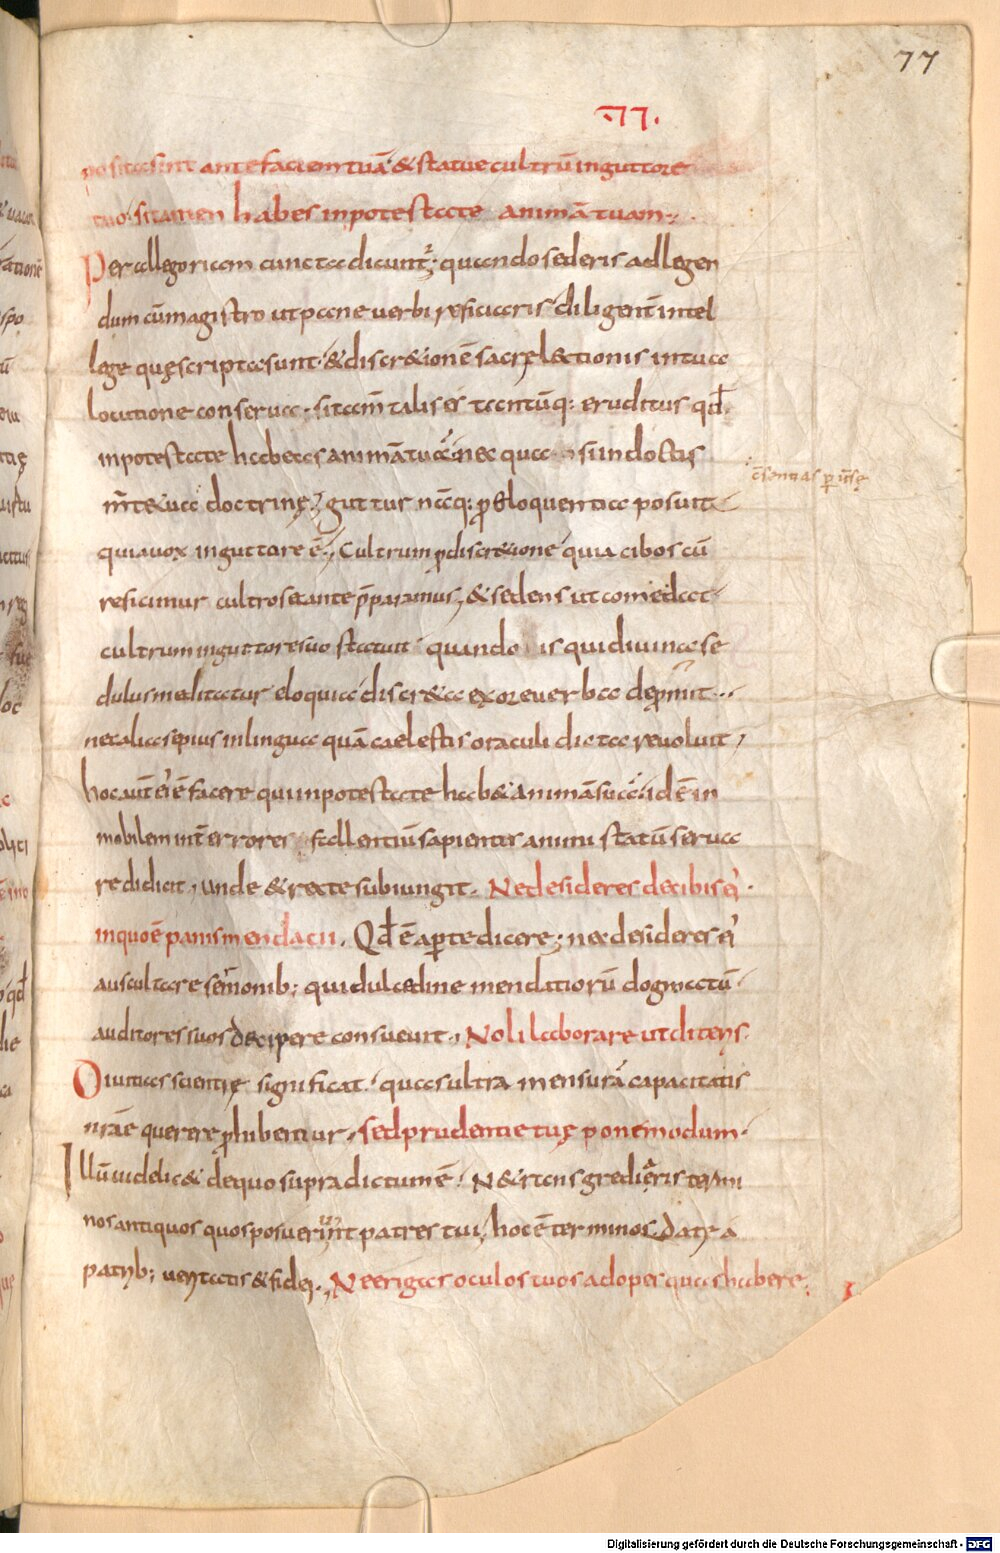 77
.77.
posita sunt ante faciem tuā & statue cultrū in gutture
tuo. si tamen habes in potestate animā tuam;
Per allegoriam cuncta dicunt᷑; quando sederis ad legen
dum cū magistro ut pane verbi reficiaris diligent̄ intel
lege quę scripta sunt. & discr&ionē sacrę lectionis in tua
locutione conserua. si tam̄ talis es tantūq: eruditus qđ
in potestate habeas animā tuā nec qua sī indoctus
doctrinę; guttur nāq: ꝓ eloquentia posuit
quia vox in gutture ē., Cultrum ꝓ discr&ione quia cibos cū
reficimur cultro secante p̄paramus; & sedens ut comedat
cultrum in gutture suo statuit. quando is qui divina se
dulus meditatur eloquia discr&a ex ore verba depromit..
nec alia sepius in lingua quā caelestis oraculi dicta revoluit;
hoc aut̄ ei ē facere qui in potestate hab& animā suā. id ē in
mobilem int̄ errores fallentiū sapientis animi statū serua
re didicit, unde & recte subiungit. Ne desideres de cibis ei
in quo ē panis mendacii. Qđ ē aꝑte dicere; nec desideres ei
auscultare sermonib; qui dulcedine mendatiorū dogmatū
auditores suos decipere consuevit., Noli laborare ut diteris.
Diuitias scientię significat. quas ultra mensurā capacitatis
nr̄ae querere ꝓhibentur, sed prudentie tuę pone modum.
Illū uidelic& de quo supra dictum ē. N& transgredieris termi
nos antiquos quos posuerunt patres tui, hoc ē terminos. datos a
patrib; veritatis & fidei., Ne erigas oculos tuos ad opes quas habere
Digitalisierung gefördert durch die Deutsche Forschungsgemeinschaft - DFG